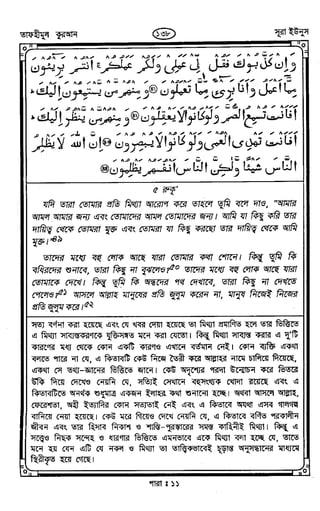 তাফহীমুল কুরআন
১৩৮
সূরা ইউনুস
وَإِنْ كَذَّبُوكَ فَقُلْ لِي عَمَلِي وَلَكُمْ عَمَلُكُمْ أَنْتُمْ بَرِيئُونَ
مِمَّا أَعْمَلُ وَأَنَا بَرِيءٌ مِمَّا تَعْمَلُونَ وَمِنْهُمْ مَنْ يَسْتَمِعُونَ إِلَيْكَ
أَفَأَنْتَ تُسْمِعُ الصُّمَّ وَلَوْ كَانُوا لَا يَعْقِلُونَ وَمِنْهُمْ مَنْ يَنْظُرُ إِلَيْكَ
أَفَأَنْتَ تَهْدِي الْعُمْيَ وَلَوْ كَانُوا لَا يُبْصِرُونَ إِنَّ اللَّهَ لَا يَظْلِمُ
النَّاسَ شَيْئًا وَلَكِنَّ النَّاسَ أَنْفُسَهُمْ يَظْلِمُونَ
৫ রুকূ'
যদি তারা তোমার প্রতি মিথ্যা আরোপ করে তাহলে তুমি বলে দাও, "আমার
আমল আমার জন্য এবং তোমাদের আমল তোমাদের জন্য। আমি যা কিছু করি তার
দায়িত্ব থেকে তোমরা মুক্ত এবং তোমরা যা কিছু করছো তার দায়িত্ব থেকে আমি
মুক্ত।"৪৯
তাদের মধ্যে বহু লোক আছে যারা তোমার কথা শোনে। কিন্তু তুমি কি
বধিরদের শুনাবে, তারা কিছু না বুঝলেও?৫০ তাদের মধ্যে বহু লোক আছে যারা
তোমাকে দেখে। কিন্তু তুমি কি অন্ধদের পথ দেখাবে, তারা কিছু না দেখতে
পেলেও?৫১ আসলে আল্লাহ মানুষের প্রতি জুলুম করেন না, মানুষ নিজেই নিজের
প্রতি জুলুম করে।৫২
সত্য বর্ণনা করা হয়েছে এবং যে খবর দেয়া হয়েছে তা মিথ্যা প্রমাণিত হলে তার ভিত্তিতে
এ মিথ্যা সাব্যস্তকরণকে যুক্তিসঙ্গত মনে করা যেতো। কিন্তু মিথ্যা সাব্যস্ত করার এ দু'টি
কারণের মধ্য থেকে কোন একটি কারণও এখানে বর্তমান নেই। কোন ব্যক্তি একথা
বলতে পারে না যে, এ কিতাবটি কেউ নিজে তৈরী করে আল্লাহর নামে চালিয়ে দিয়েছে,
একথা সে তথ্য-জ্ঞানের ভিত্তিতে জানে। কেউ অদৃশ্যের পরদা উন্মোচন করে ভিতরে
উঁকি দিয়ে দেখেও নেয়নি যে, সত্যিই সেখানে বহুসংখ্যক খোদা রয়েছে এবং এ
কিতাবটিতে অনর্থক শুধুমাত্র একজন ইলাহর কথা শুনানো হচ্ছে। অথবা আসলে আল্লাহ,
ফেরেশতা, অহী ইত্যাদির কোন সত্যতাই নেই এবং এ কিতাবে অযথা এসব গালগল্প
বানিয়ে নেয়া হয়েছে। কেউ মরে গিয়েও দেখে নেয়নি যে, এ কিতাবে বর্ণিত পরকালীন
জীবন এবং তার হিসাব নিকাশ ও শাস্তি-পুরস্কারের সমস্ত কাহিনীই মিথ্যা। কিন্তু এ
সত্ত্বেও নিছক সন্দেহ ও ধারণার ভিত্তিতে এমনভাবে একে মিথ্যা বলা হচ্ছে যে, তাতে
মনে হয় যেন এটি যে নকল ও মিথ্যা তা তাত্ত্বিকভাবেই চূড়ান্ত অনুসন্ধানের মাধ্যমে
স্থিরীকৃত হয়ে গেছে।
পারা ঃ ১১